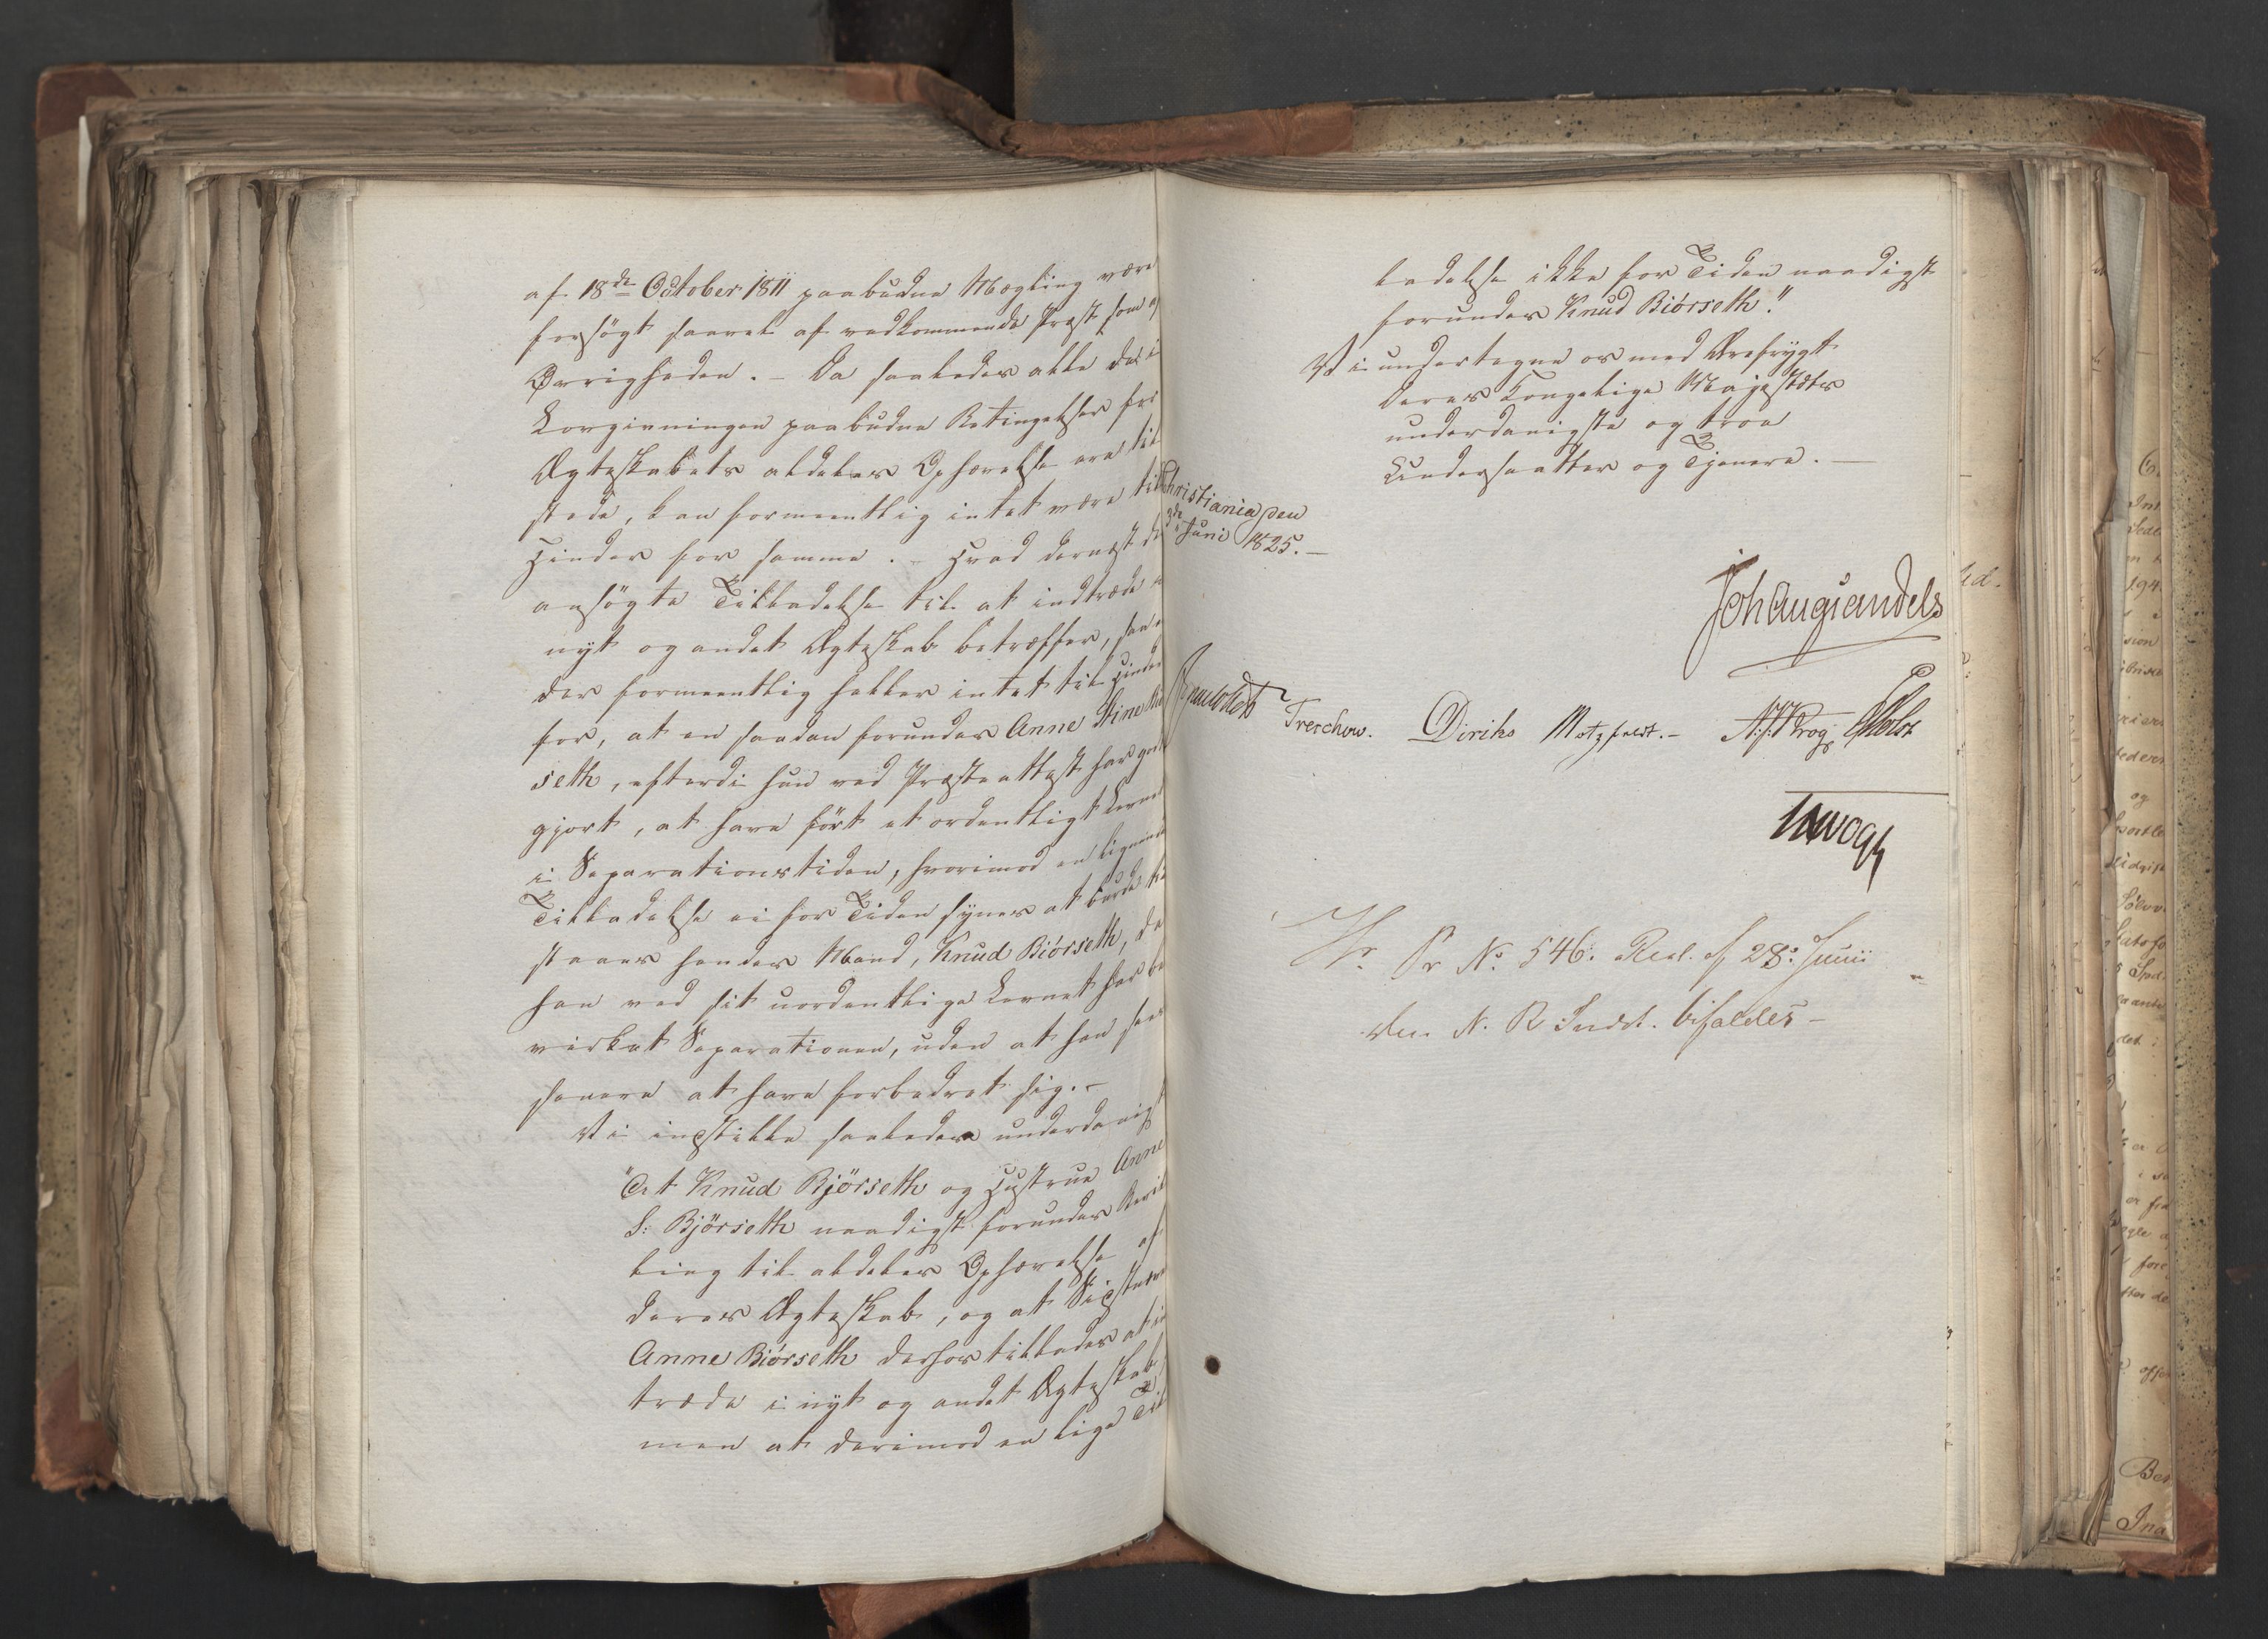 af 18de October 1811 paabudne Mægling være
forsögt saavel af vedkommende Præst som af
Øvrigheden. – Da saaledes alle de i
Lovgivningen paabudne Betingelser for
Ægteskabets aldeles Ophævelse ere til
stede, kan formeentlig intet være til
Hinder for samme. – Hvad dernæst den
ansögte Tilladelse til at indtræde i
nyt og andet Ægteskab betræffer, saa
der formeentlig heller intet til Hinder
for, at en saadan forundes Anne Stine Biör
seth, efterdi hun ved Præsteattest har godt
gjort, at have fört et ordentligt Levnet
i Separationstiden, hvorimod en lignende
Tilladelse ei for Tiden synes at burde til
staaes hendes Mand, Knud Biörseth, da
han ved sit uordentlige Levnet har be
virket Separationen, uden at han sees
senere at have forbedret sig. –
Vi indstille saaledes underdanigst
"At Knud Bjørseth og Hustrue Anne
S: Bjørseth naadigst forundes Bevil
ling til aldeles Ophævelse af
deres Ægteskab, og at Sidstnævnte
Anne Biörseth derhos tillades at ind
træde i nyt og andet Ægteskab,
men at derimod en lige Til
ladelse ikke for Tiden naadigst
forundes Knud Biörseth."
Vi undertegne os med Ærefrygt
Deres Kongelige Majestæts
underdanigste og troe
Undersaatter og Tjenere. –
Christiania den
3de Juni 1825. –
Joh Aug Sandels
Treschow. Diriks Motzfeldt. – A: J: Krog. Holst
Vogt
Sr No. 546. Resl. af 28. Junii
den N. R. Indst. bifaldes –